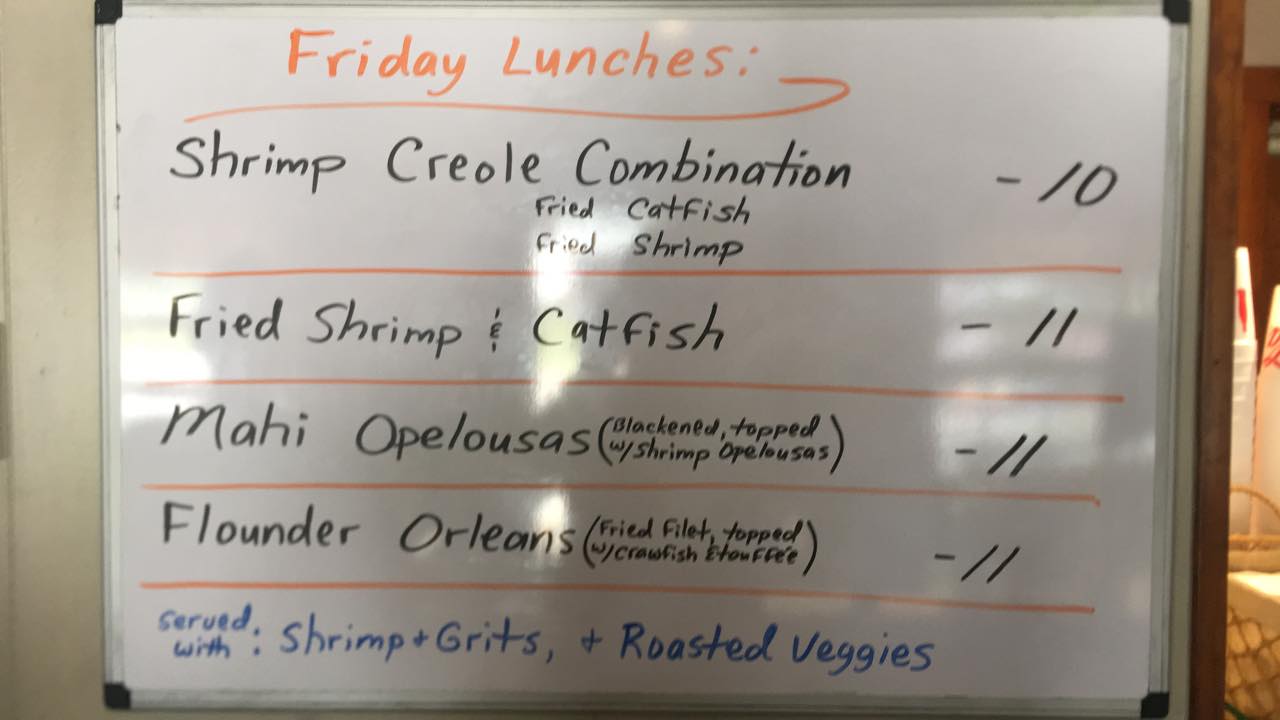 Friday Lunches:
Shrimp Creole Combination - 10
Fried Catfish
Fried Shrimp
Fried Shrimp & Catfish - 11
Mahi Opelousas (Blackened, topped - 11
w/Shrimp Opelousas)
Flounder Orleans (Fried Filet, topped - 11
w/Crawfish Étouffée)
served
with: Shrimp + Grits, + Roasted Veggies